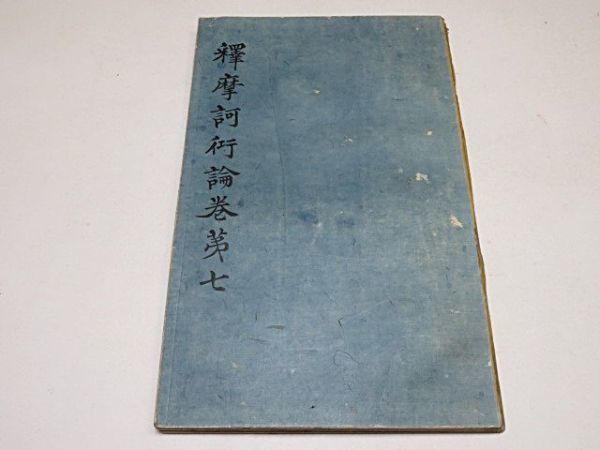 釋摩訶衍論卷第七